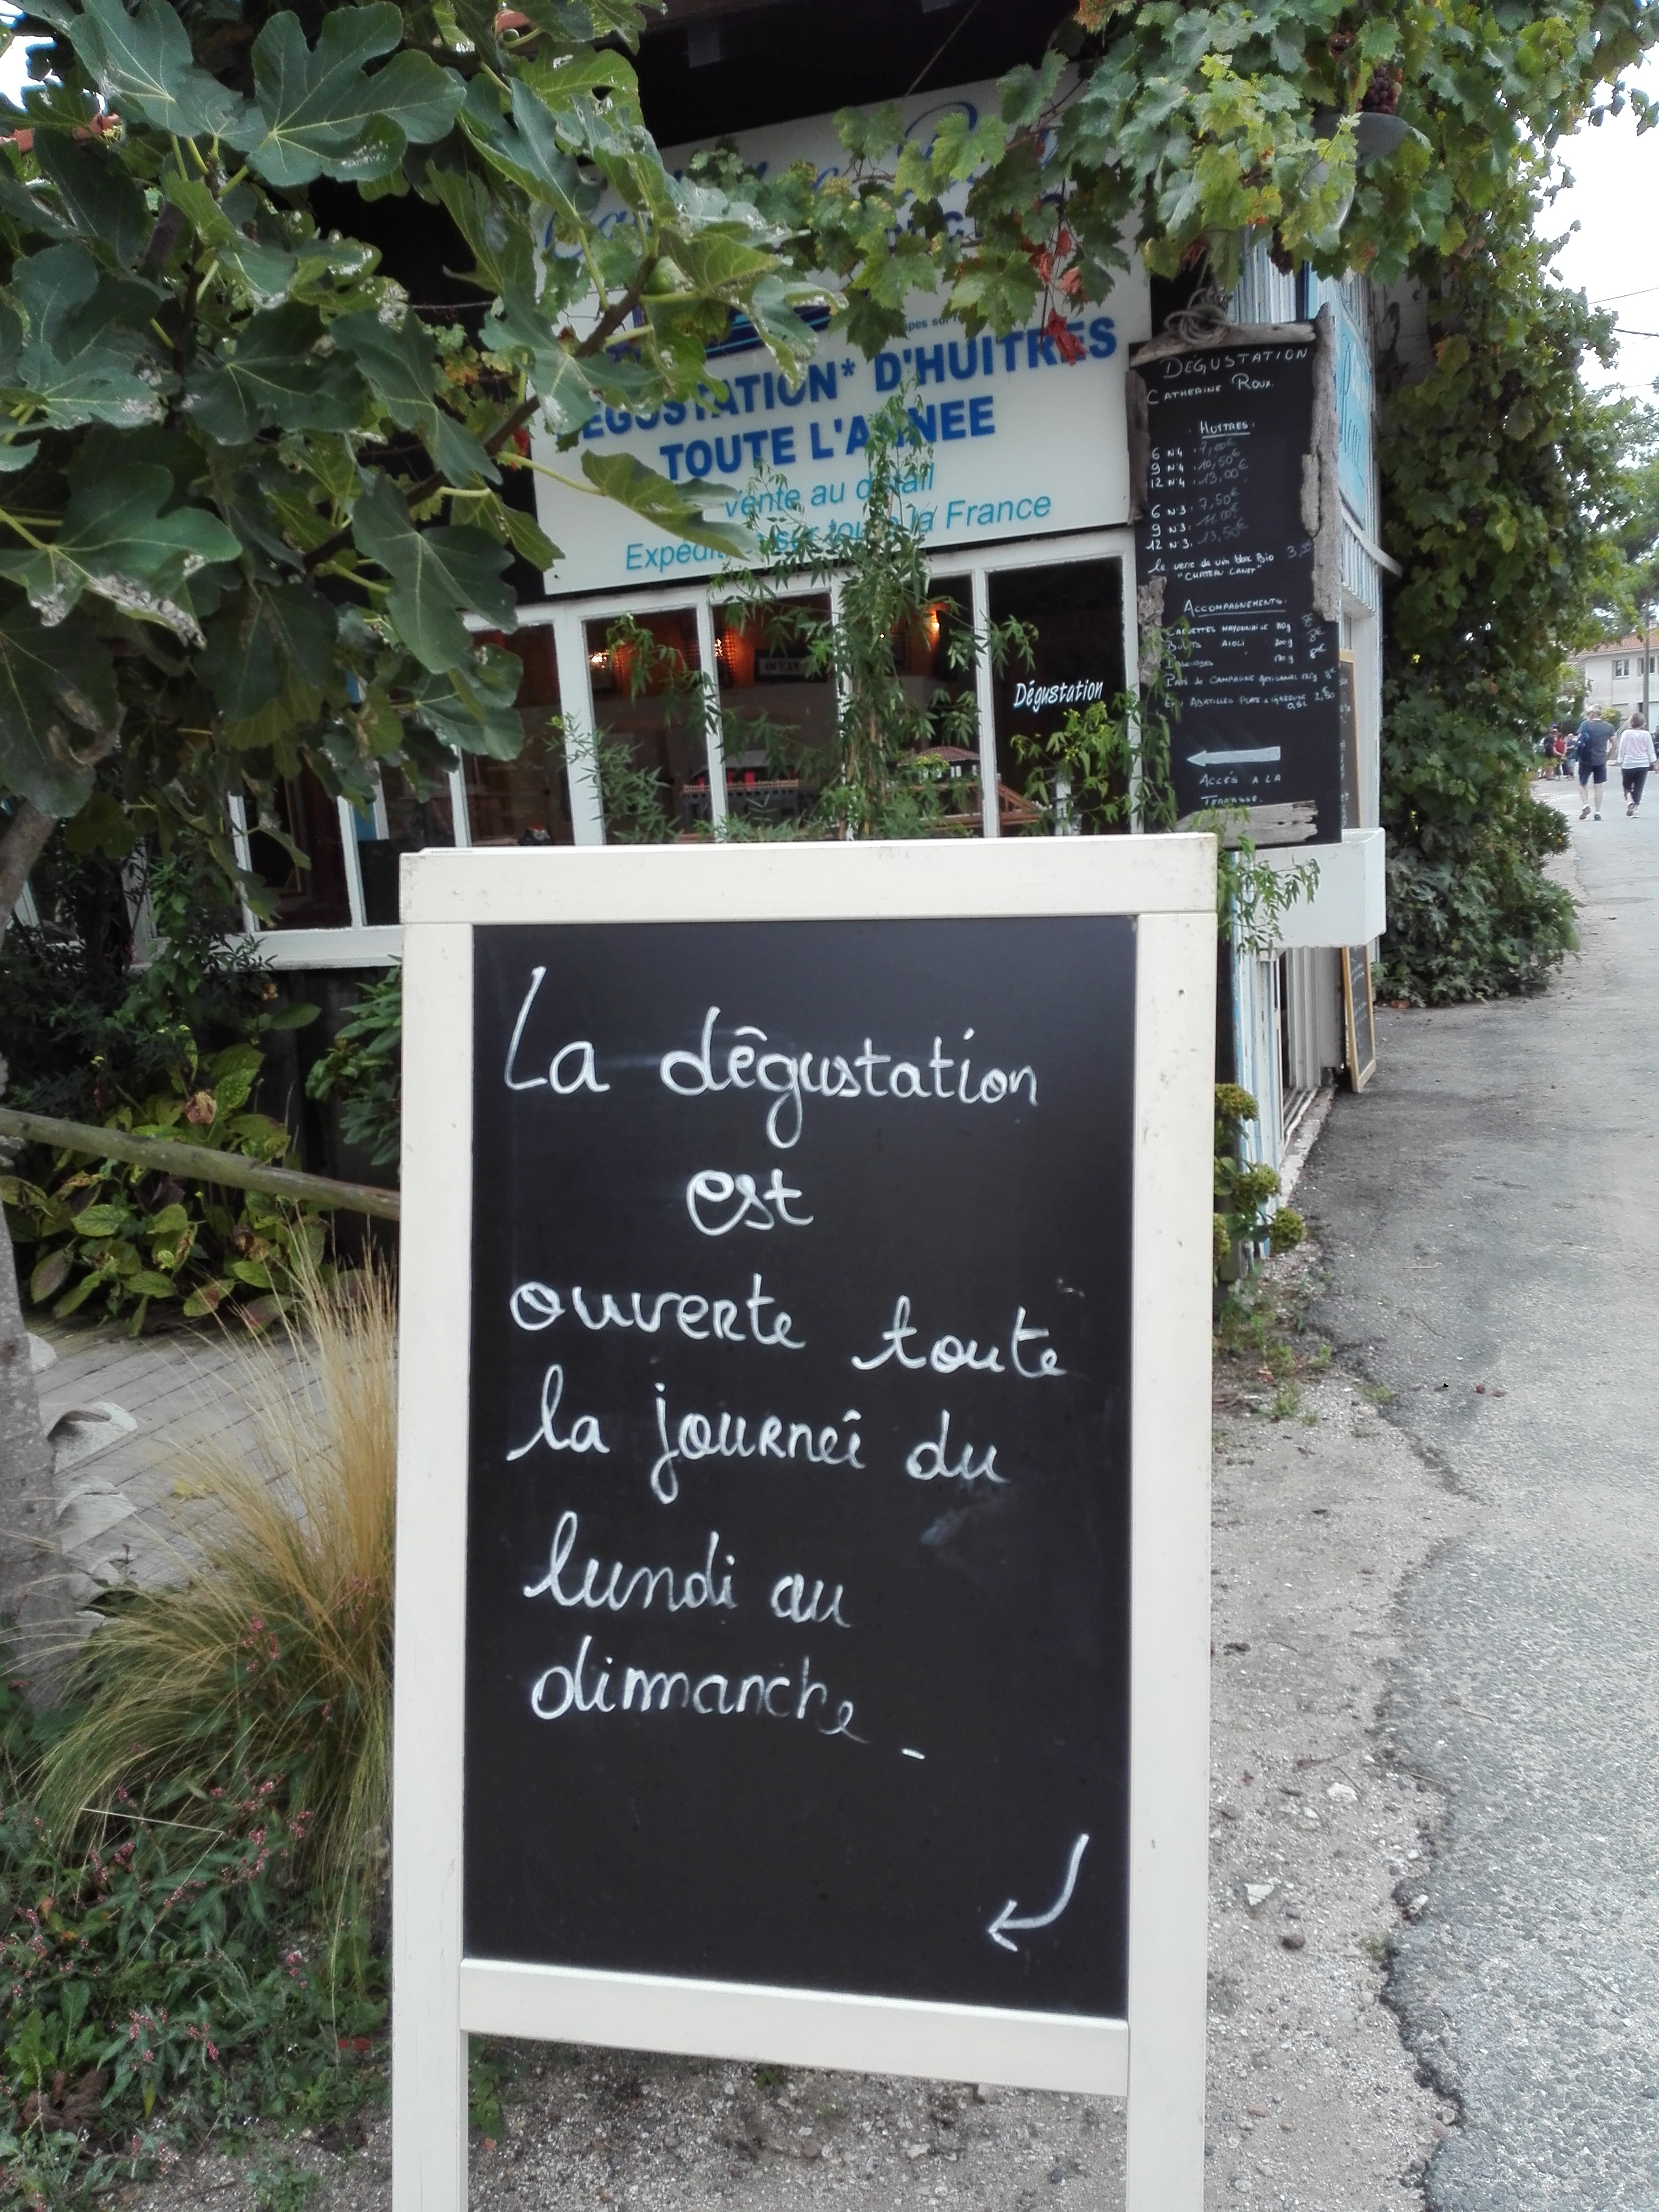 DEGUSTATION* D'HUITRES
TOUTE L'ANNEE
vente au détail
Expédition sur toute la France
OCEAN
Dégustation
DEGUSTATION
CATHERINE ROUX
HUITRES:
6 N°4 . 7,00€
9 N°4 . 10,50€
12 N°4 . 13,00€
6 N°3. 7,50€
9 N°3. 11,00€
12 N°3. 13,50€
le verre de vin blanc Bio
"CHATEAU CANET"
ACCOMPAGNEMENTS:
MAYONNAISE
AIOLI 200g
CAMPAGNE
ABATILLES PLATE
ACCÈS A LA
TERRASSE.
La dêgustation
est
ouverte toute
la journeî du
lundi au
dimanche -